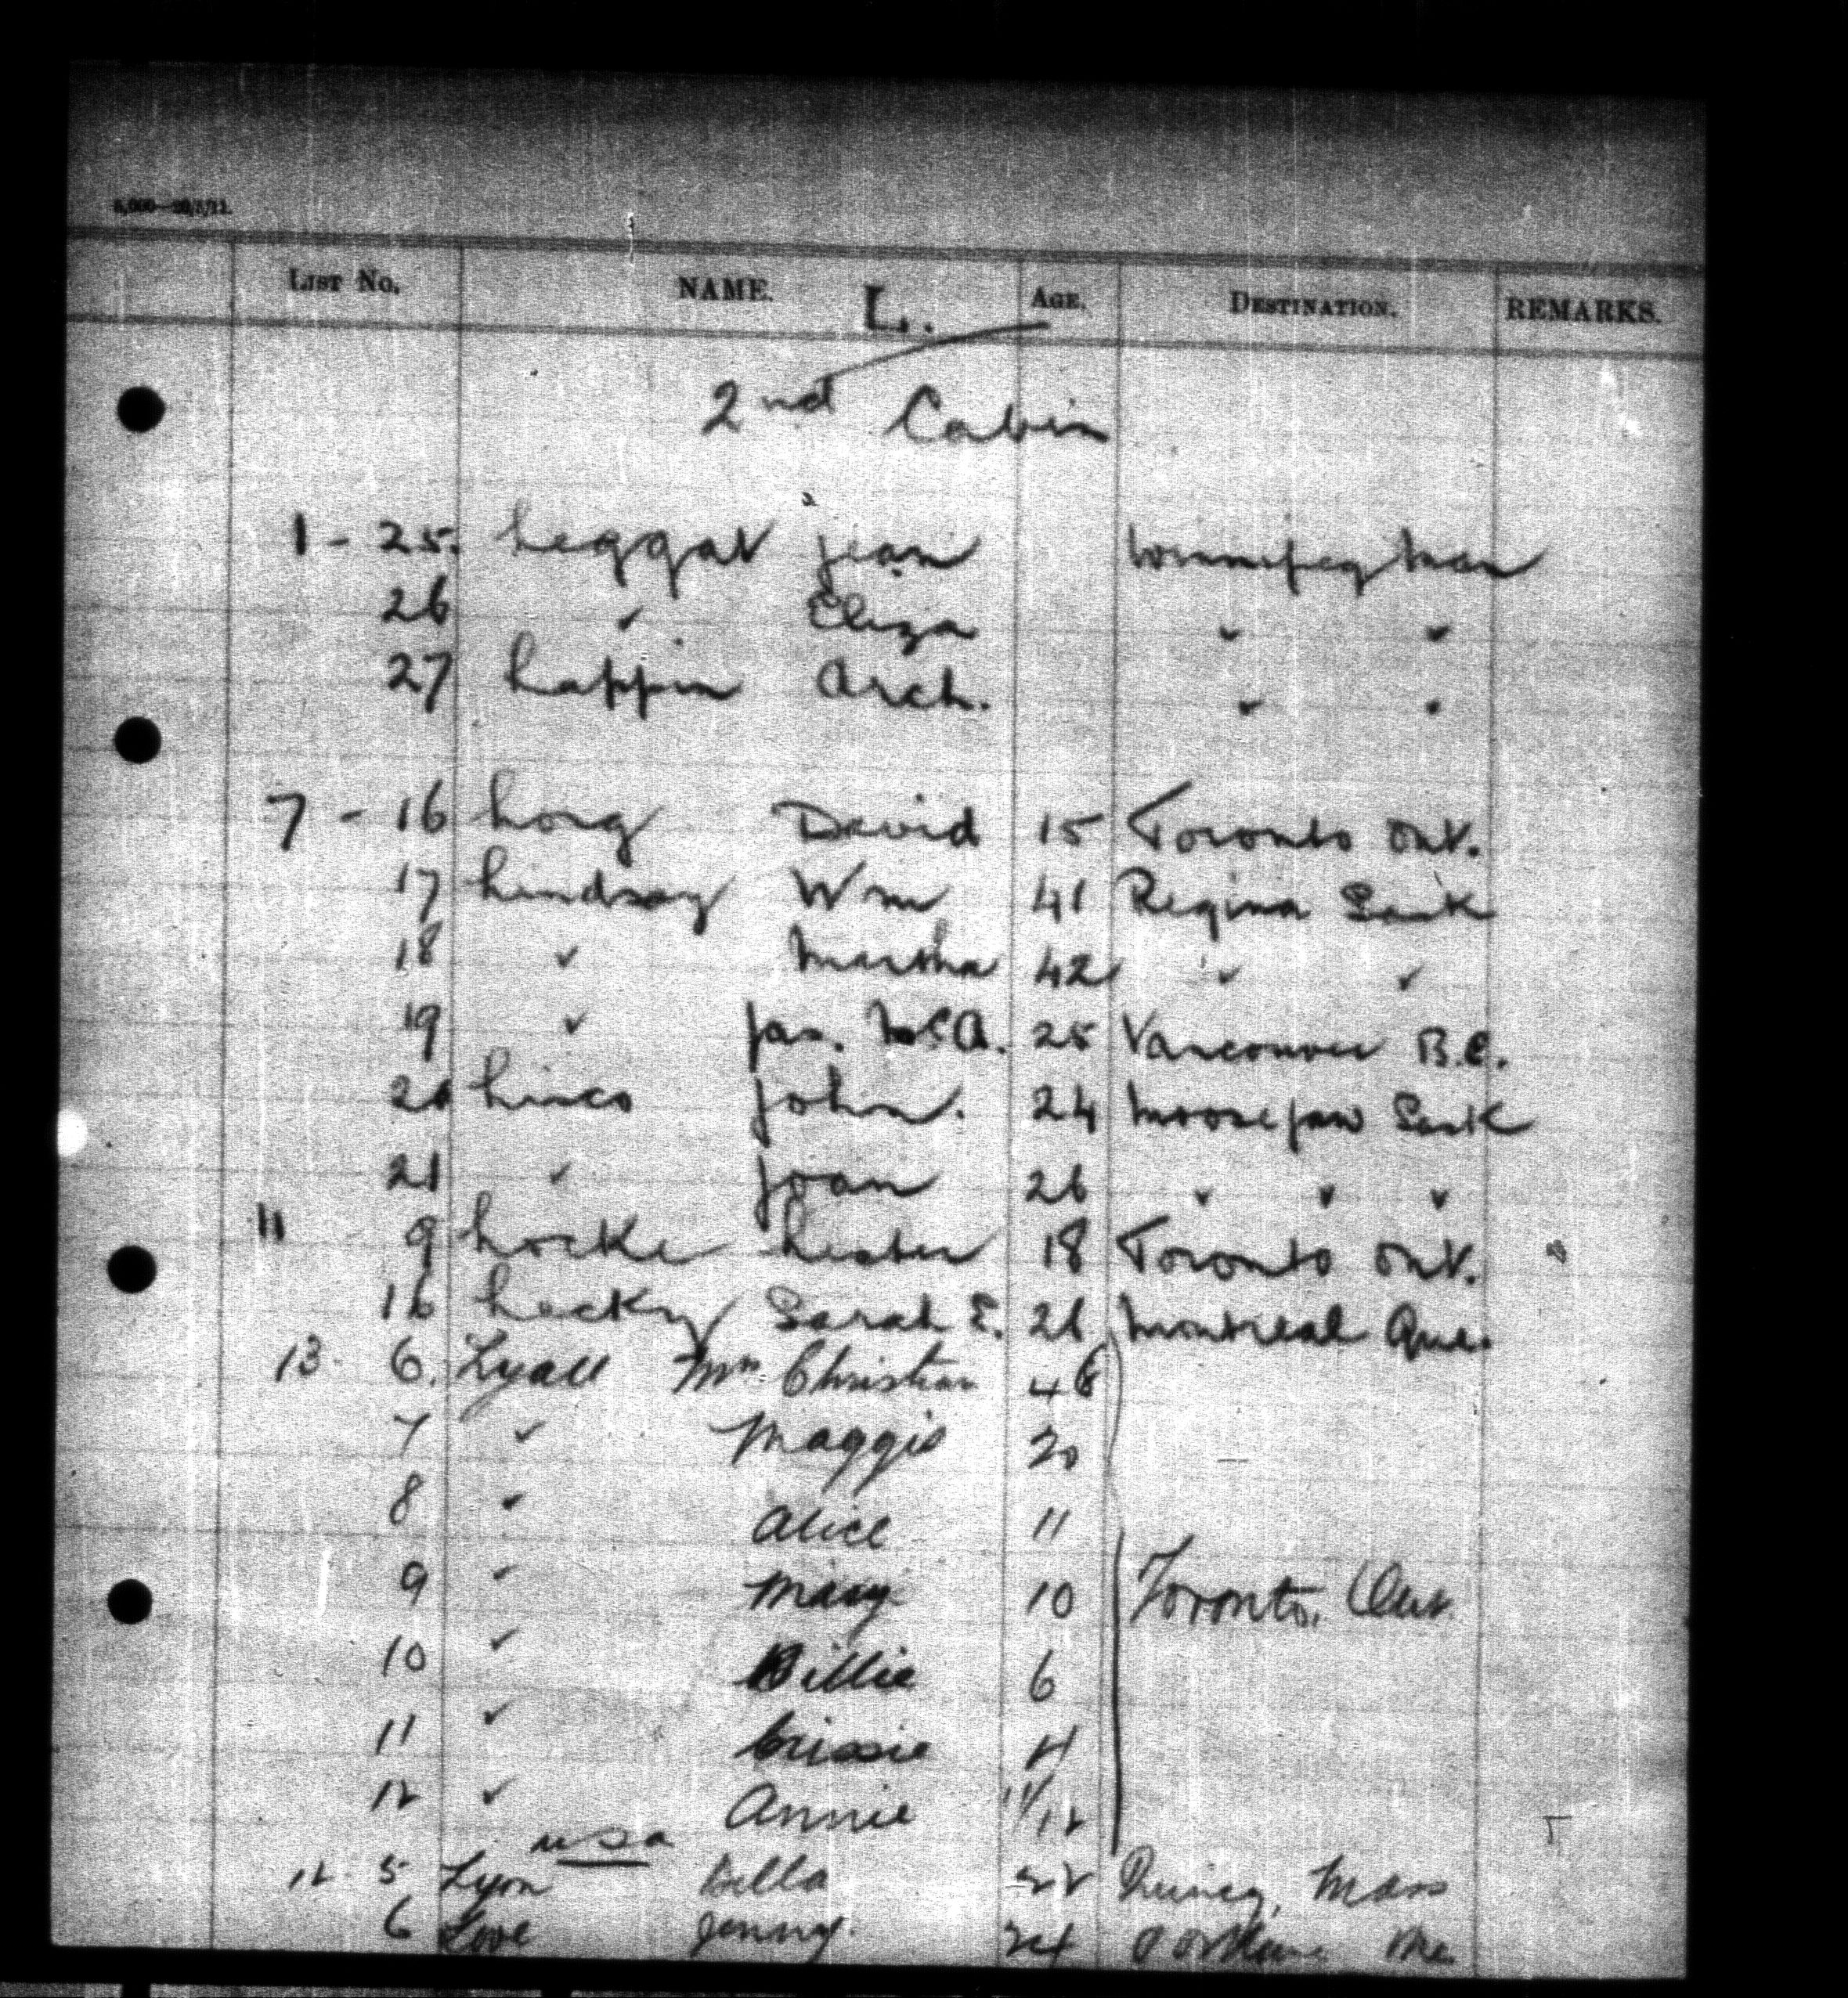 5,000—20/3/11.
LIST No. NAME. L. AGE. DESTINATION. REMARKS.
2nd Cabin
1 - 25. Leggat Jean Winnipeg Man
26 " Eliza " "
27 Lappin Arch. " "
7 - 16 Long David 15 Toronto Ont.
17 Lindsay Wm 41 Regina Sask
18 " Martha 42 " "
19 " Jas. McA. 25 Vancouver B.C.
20 John. 24 Moosejaw Sask
21 " Joan 26 " " "
11 9 Locke Lester 18 Toronto Ont.
16 Lecky Sarah E. 26 Montreal Que.
13 - 6. Lyall Mrs. Christian 46
7 " Maggie 20
8 " Alice 11
9 " Mary 10 Toronto, Ont.
10 " Billie 6
11 " Crissie 4
12 " Annie 11/12
USA
12 - 5 Lyon Bella 22 Quincy, Mass
6 Love Jenny. 24 Me